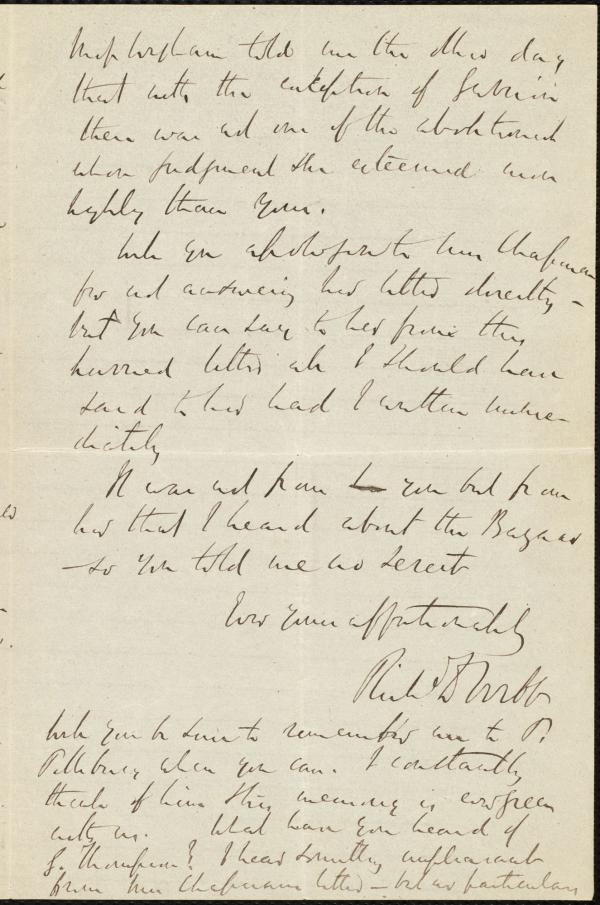 told me the other day
that with the exception of Garrison
there was not one of the abolitionists
whose judgment she esteemed more
highly than yours.
Will you apologise to Mrs Chapman
for not answering her letter directly -
but you can say to her from this
hurried letter wh I should have
said to her had I written imme-
diately
It was not from you but from
her that I heard about the Bazaar
- so you told me no secret
Ever yours affectionately
Richd D Webb
Will you be sure to remember me to P.
Pillsbury when you can. I constantly
think of him & his memory is evergreen
with us. What have you heard of
G. Thompson? I hear something unpleasant
from Mrs Chapmans letter - but no particulars